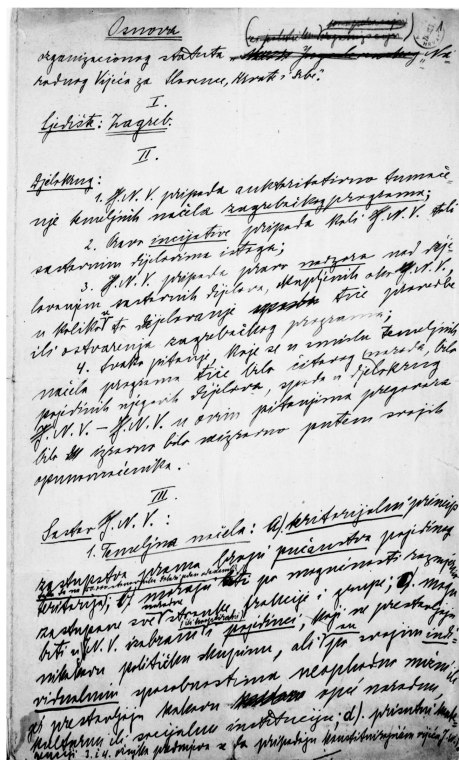 Osnova
organizacionog statuta Na-
rodnog Vijeća za Slovence, Hrvate i Srbe."
I.
Sjedište: Zagreb.
II.
Djelokrug:
1. N. V. pripada auktoritativno tumače-
nje temeljnih načela zagrebačkog programa;
2. Pravo incijative pripada koli N. V. toli
sastavnim dijelovima istoga;
3. N. V. pripada pravo nadzora nad dje-
lovanjem sastavnih dijelova, okupljenih oko N. V.,
u koliko se to djelovanje tiče provedbe
ili ostvarenja zagrebačkog programa;
4. Svako pitanje, koje se u smislu temeljnih
načela programa tiče bilo čitavog naroda, bilo
pojedinih njegovih dijelova, spada u djelokrug
N. V. – N. V. u ovim pitanjima pregovara
bilo izravno bilo neizravno putem svojih
opunomoćenika.
III.
Sastav N. V.:
1. Temeljna načela: a). teritorijalni princip
zastupstva prema broju pučanstva pojedinog
teritorija; b) moraju biti po mogućnosti razmjerno
zastupane sve stranke, frakcije i grupe; c) mogu
biti u N. V. izabrani i pojedinci, koji ne predstavljaju
nikakovu političku skupinu, ali su po svojim indi-
vidualnim sposobnostima neophodno nužni ili
predstavljaju kakovu opće narodnu,
kulturnu ili socijalnu instituciju; d).